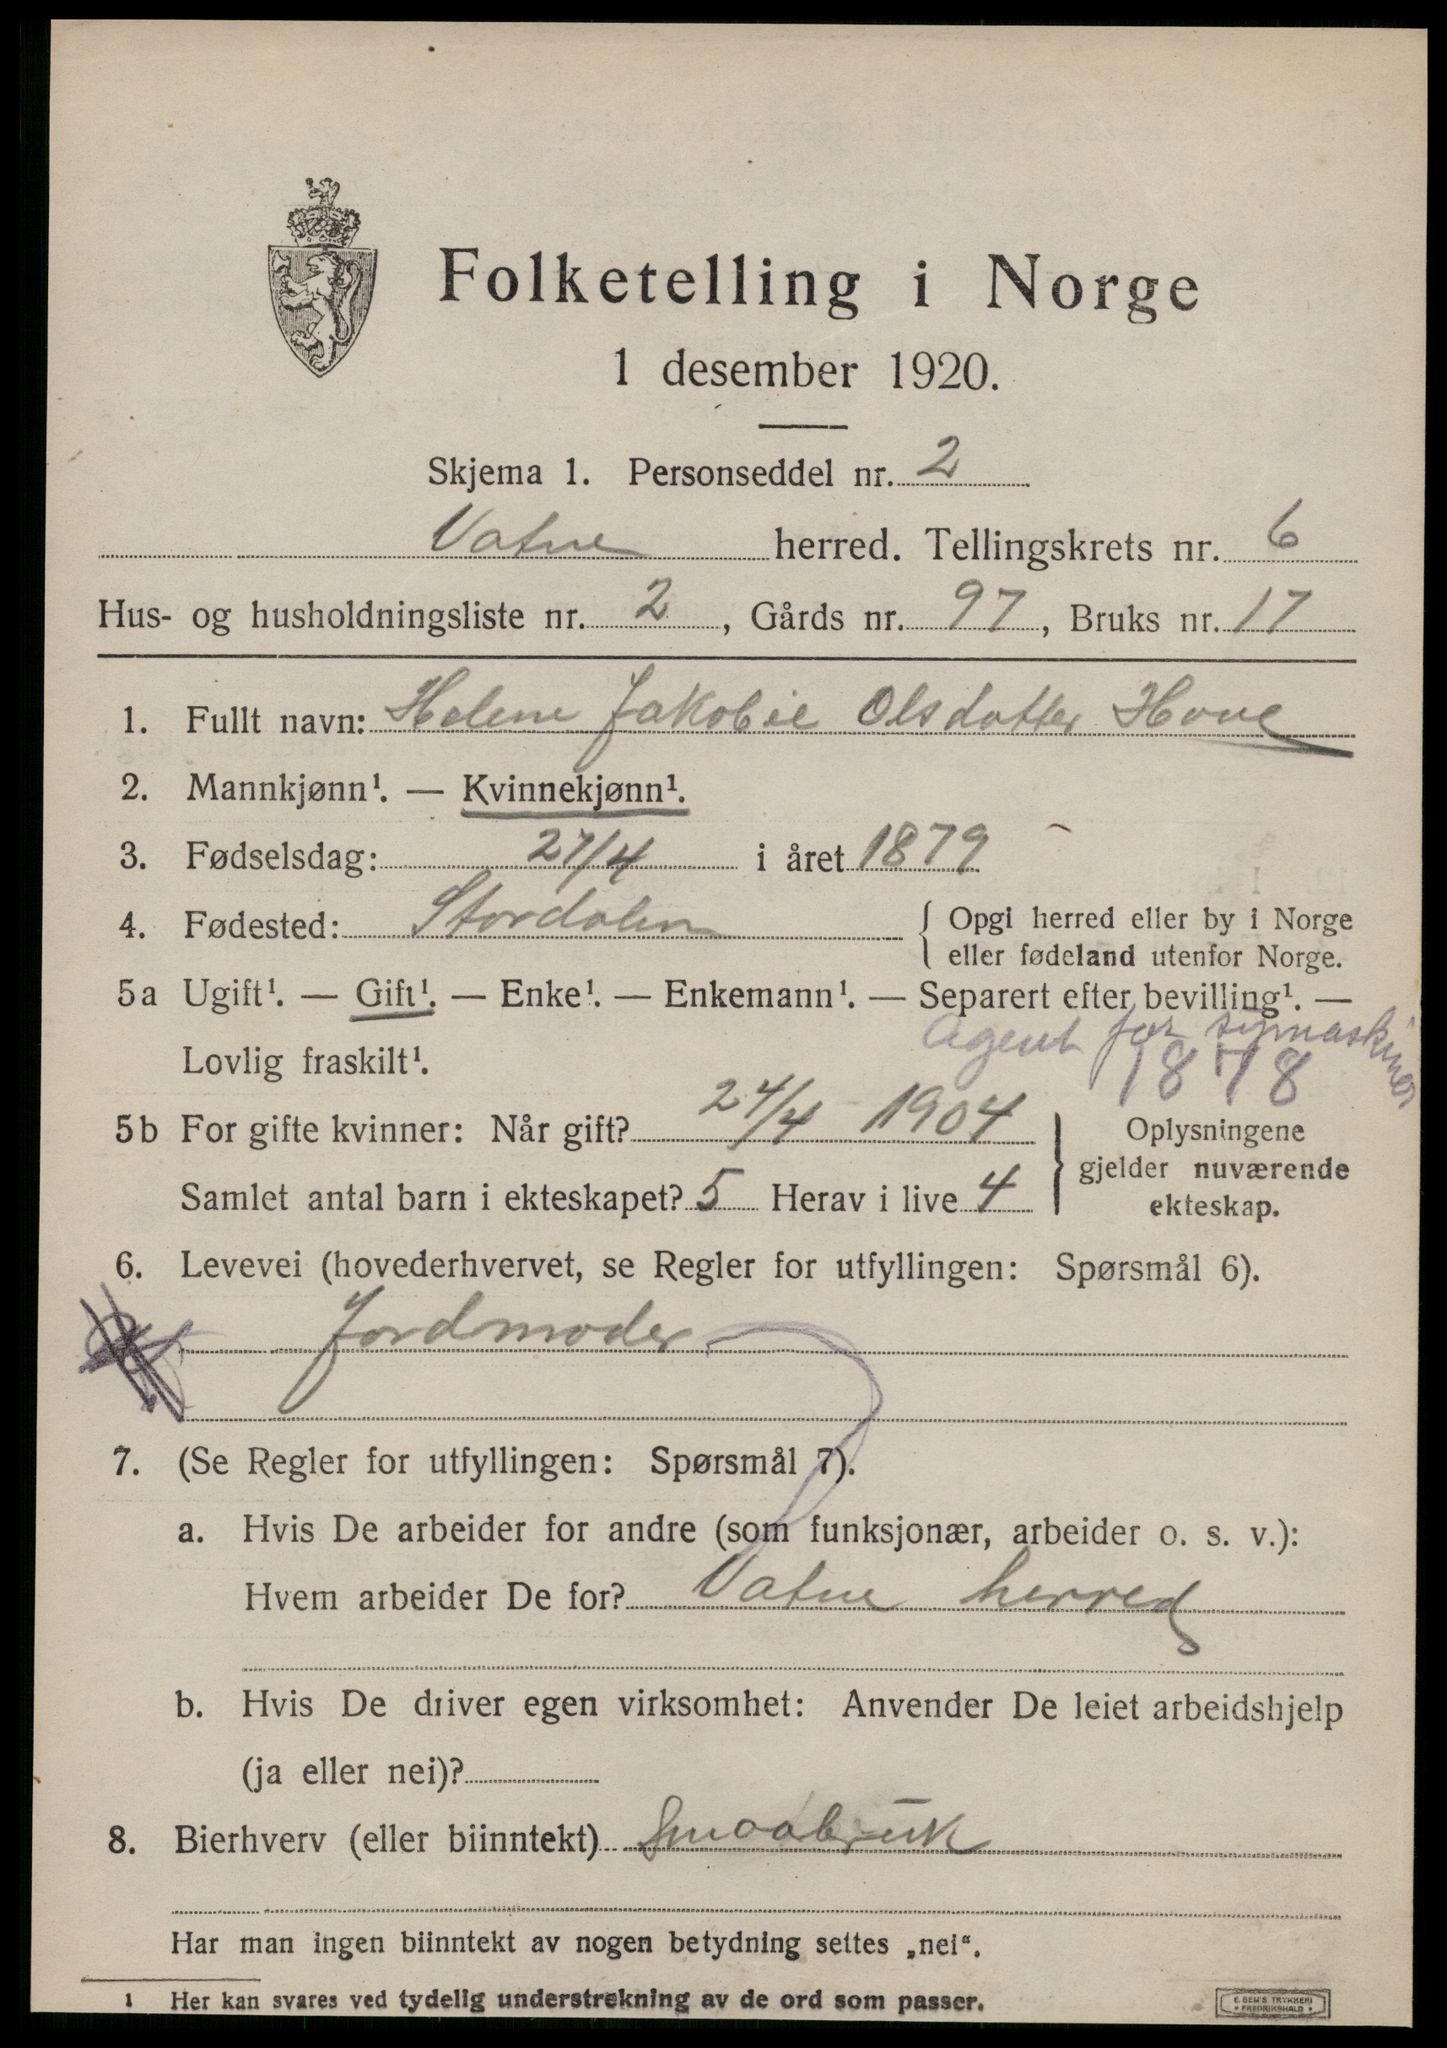 Folketelling i Norge
1 desember 1920.
Skjema 1. Personseddel nr. 2
Vatne herred. Tellingskrets nr. 6
Hus- og husholdningsliste nr. 2, Gårds nr. 97, Bruks nr. 17
1. Fullt navn: Helene Jakobie Olsdatter Hove
2. Mannkjønn¹. — Kvinnekjønn¹.
3. Fødselsdag: 27/4 i året 1879
4. Fødested: Stordalen { Opgi herred eller by i Norge
eller fødeland utenfor Norge.
5a Ugift¹. — Gift¹. — Enke¹. — Enkemann¹. — Separert efter bevilling¹. —
Agent for symaskiner
Lovlig fraskilt¹. 1878
5b For gifte kvinner: Når gift? 24/4 1904 } Oplysningene
gjelder nuværende
Samlet antal barn i ekteskapet? 5 Herav i live 4 ekteskap.
6. Levevei (hovederhvervet, se Regler for utfyllingen: Spørsmål 6).
Jordmoder
7. (Se Regler for utfyllingen: Spørsmål 7).
a. Hvis De arbeider for andre (som funksjonær, arbeider o. s. v.):
Hvem arbeider De for? Vatne herred
b. Hvis De driver egen virksomhet: Anvender De leiet arbeidshjelp
(ja eller nei)?
8. Bierhverv (eller biinntekt) Smaabruk
Har man ingen biinntekt av nogen betydning settes „nei“.
1 Her kan svares ved tydelig understrekning av de ord som passer.
E. SEM'S TRYKKERI
* FREDRIKSHALD *